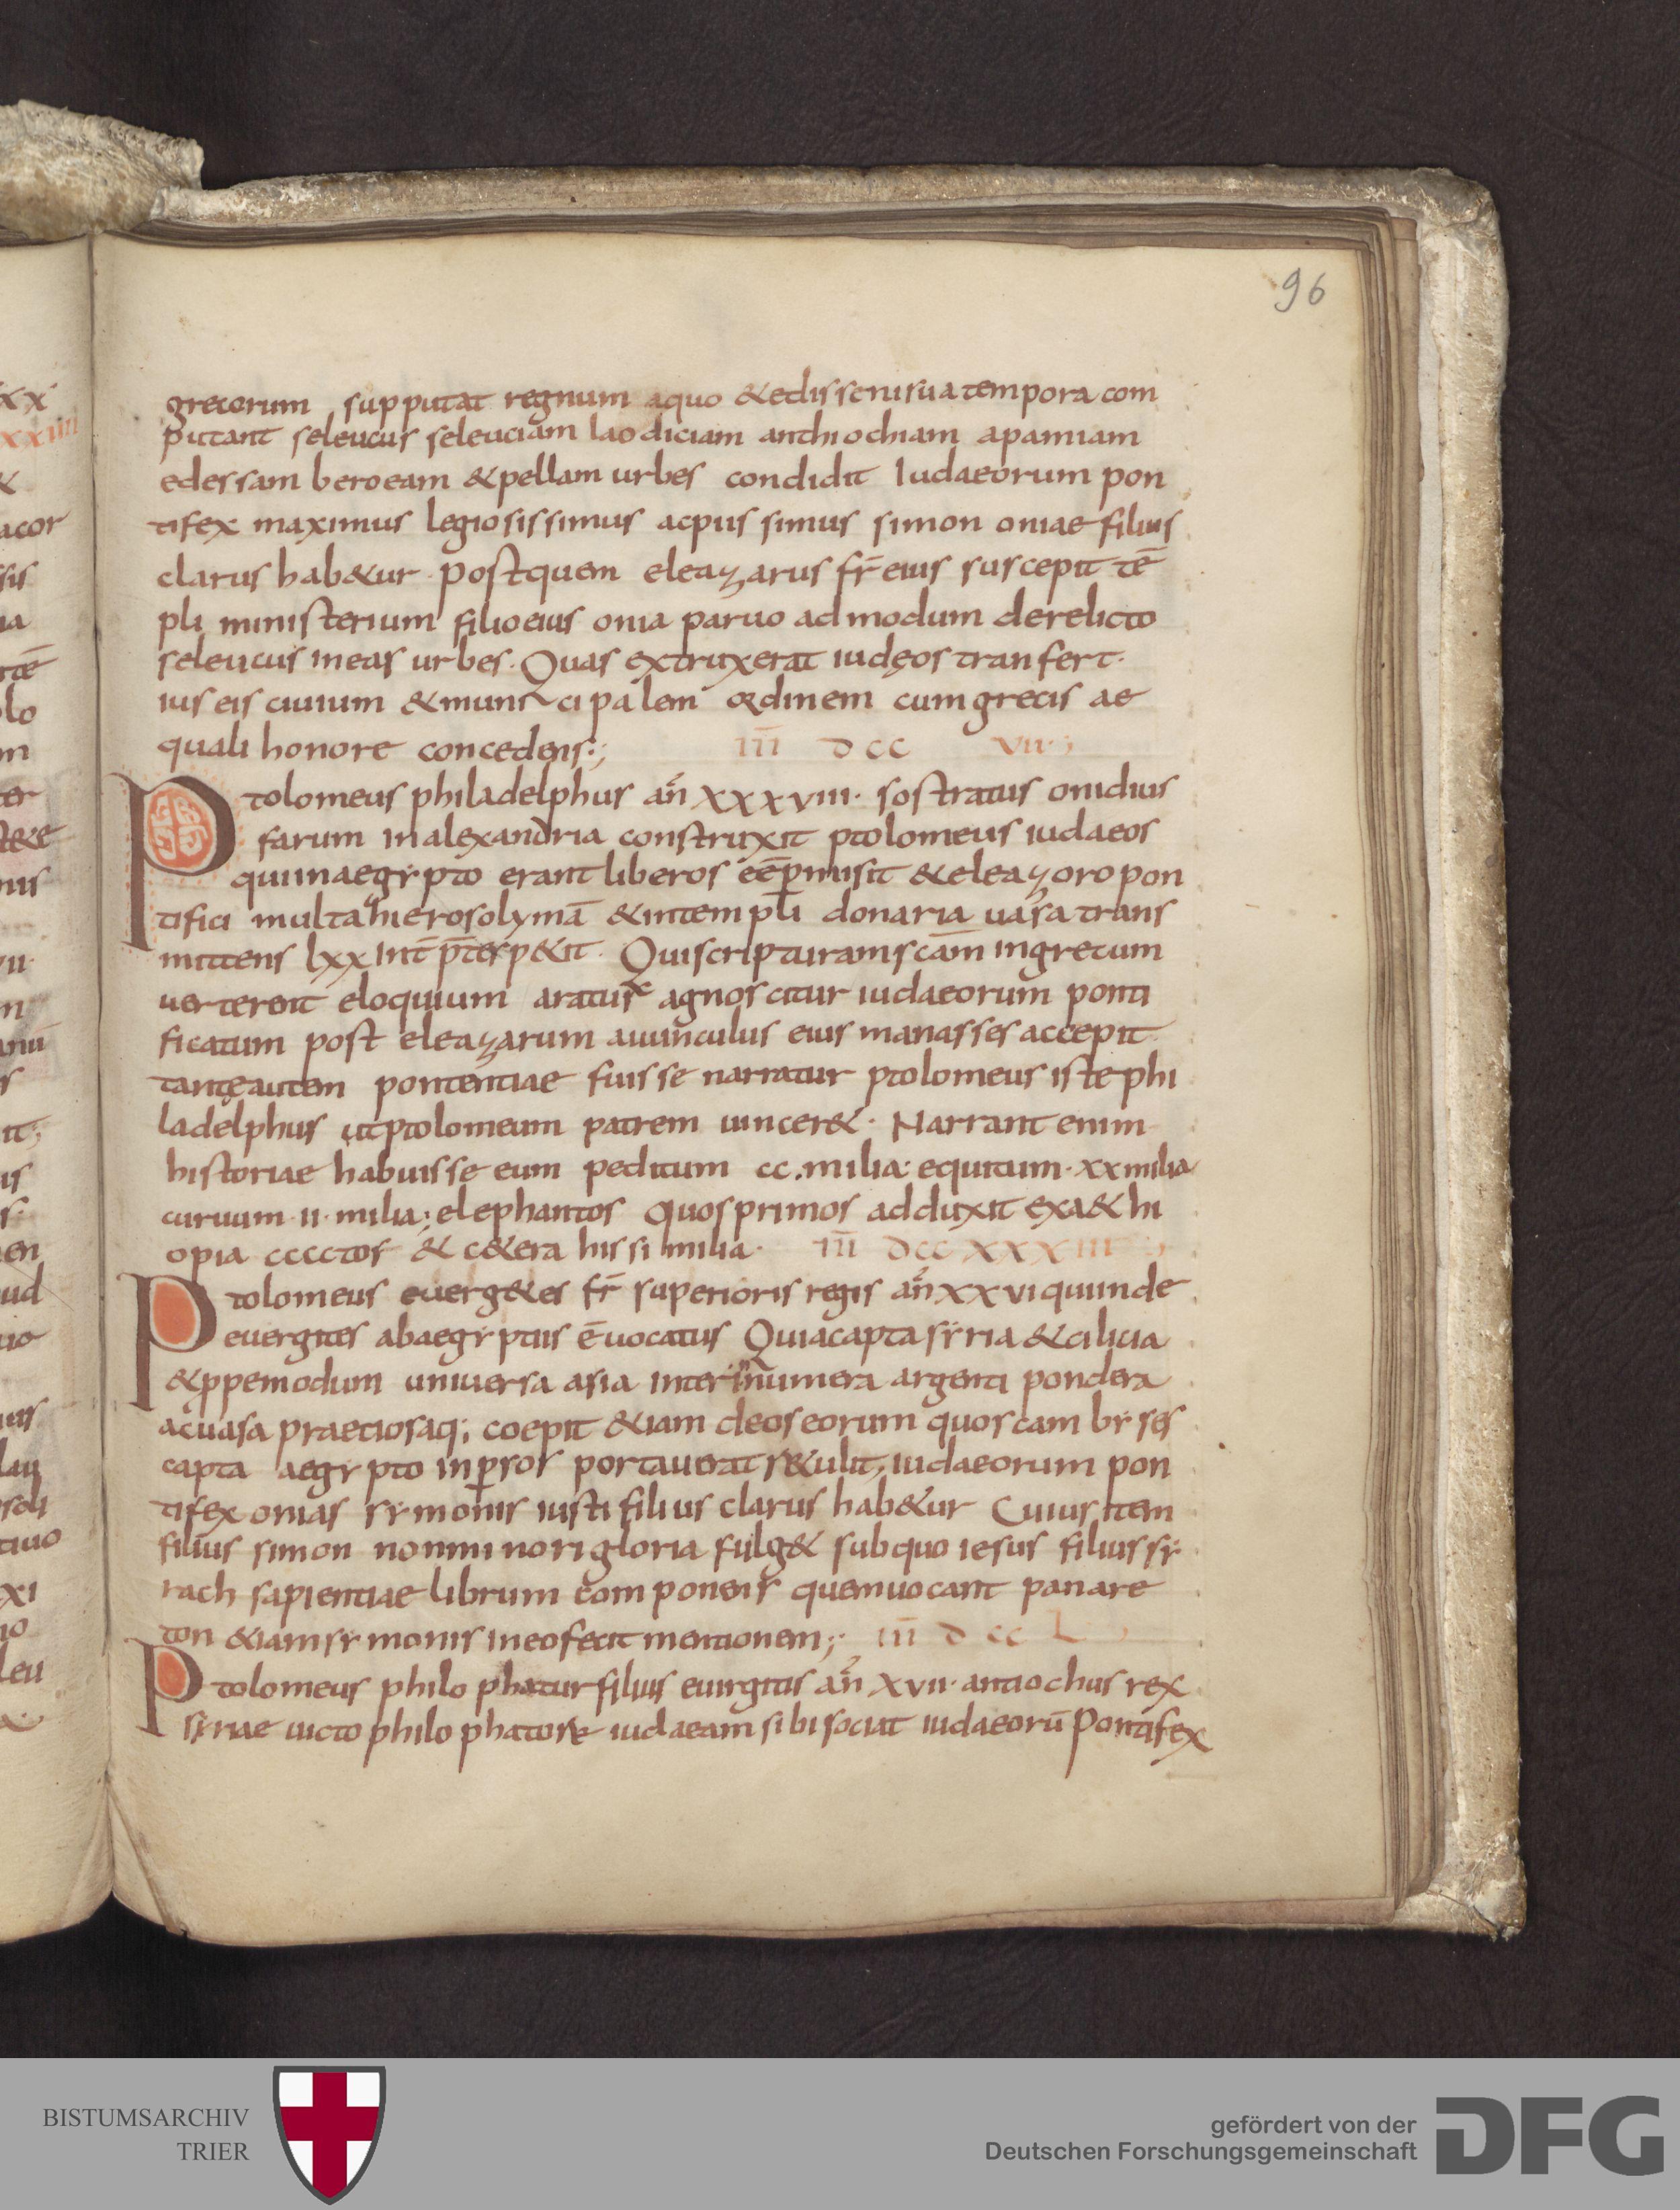 96
grecorum supputat regnum aquo &edissenisua tempora com
putant seleucus seleuciam laodiciam anthiochiam apamiam
edessam beroeam &pellam urbes condidit Iudaeorum pon
tifex maximus legiosissimus acpiis simus simon oniae filius
clarus hab&ur · postquem eleazarus fr̄ eius suscepit tē
pli ministerium filioeius onia paruo admodum derelicto
seleucus ineas urbes. Quas extruxerat iudęos tranfert·
ius eis ciuium &muni cipalem ordinem cum grecis ae
quali honore concedens:; īīī DCC VII·;
Ptolomeus philadelphus añ XXXVIII· sostratus onidius
farum inalexandria construxit ptolomeus iudaeos
quiinaegẏpto erant liberos eēp̄misit &eleazoro pon
tifici multa hierosolymā &intempli donaria uasa trans
mittens lxx int̄ p̄tes p&iit· Qui scripturam sc̄am ingrecum
uerterent eloquium aratus agnoscitur iudaeorum ponti
ficatum post eleazarum auunculus eius manasses accepit
tantęautem pontentiae fuisse narratur ptolomeus iste phi
ladelphus utptolomeum patrem uincer&· Narrant enim
historiae habuisse eum peditum cc.milia: equitum· xx milia
curuum ·ii· milia; elephantos quos primos adduxit exa&hi
opia cccctos & c&era his similia· īīī DCC XXXIII
Ptolomeus euerg&es fr̄ superioris regis añ XXVI quiinde
euergites abaegẏptiis ē uocatus Quiacapta sẏria &cilicia
&ppemodum uniuersa asia inter innumera argenti pondera
acuasa praetiosaq; coepit &iam deos eorum quos cambẏses
capta aegẏpto inpsos portauerat r&ulit; iudaeorum pon
tifex onias sẏmonis iusti filius clarus hab&ur Cuius item
filius simon nonminori gloria fulg& subquo iesus filius sẏ
rach sapientiae librum componens quemuocant panare
ton &iam sẏmonis ineofecit mentionem;· īīī D CC L
Ptolomeus philophatur filius euirgitis añ XVII· antiochus rex
sẏriae uicto philophatore iudaeam sibi sociat iudaeorū Pontifex
BISTUMSARCHIV
TRIER
gefördert von der
Deutschen Forschungsgemeinschaft
DFG